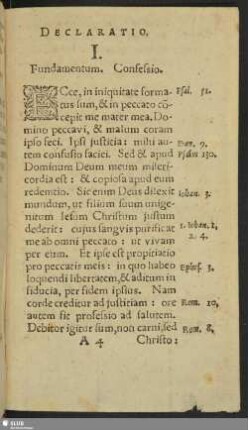 DECLARATIO.
I.
Fundamentum. Confessio.
ECce, in iniquitate forma- Psal. 51.
tus sum, & in peccato cō-
cepit me mater mea. Do-
mino peccavi, & malum coram
ipso feci. Ipsi justitia: mihi au- Dan. 9.
tem confusio faciei. Sed & apud Psalm 130.
Dominum Deum meum miseri-
cordia est: & copiosa apud eum
redemtio. Sic enim Deus dilexit Iohan. 3.
mundum, ut filium suum unige-
nitum Iesum Christum justum
dederit: cujus sangvis purificat 1. Iohan. 1,
me ab omni peccato: ut vivam 2. 4.
per eum. Et ipse est propitiatio
pro peccatis meis: in quo habeo Ephes. 3.
loquendi libertatem, & aditum in
fiducia, per fidem ipsius. Nam
corde creditur ad justitiam: ore Rom. 10,
autem fit professio ad salutem.
Debitor igitur sum, non carni, sed Rom. 8,
A 4 Christo:
SLUB